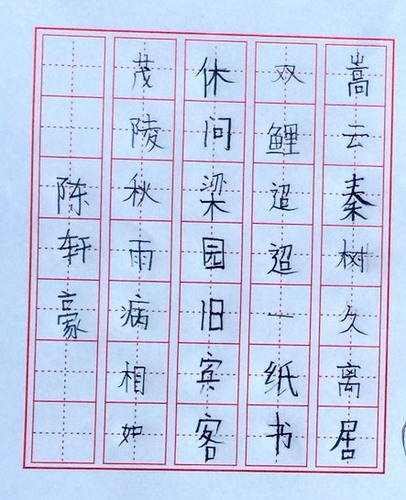 嵩云秦树久离居
双鲤迢迢一纸书
休问梁园旧宾客
茂陵秋雨病相如
陈轩豪